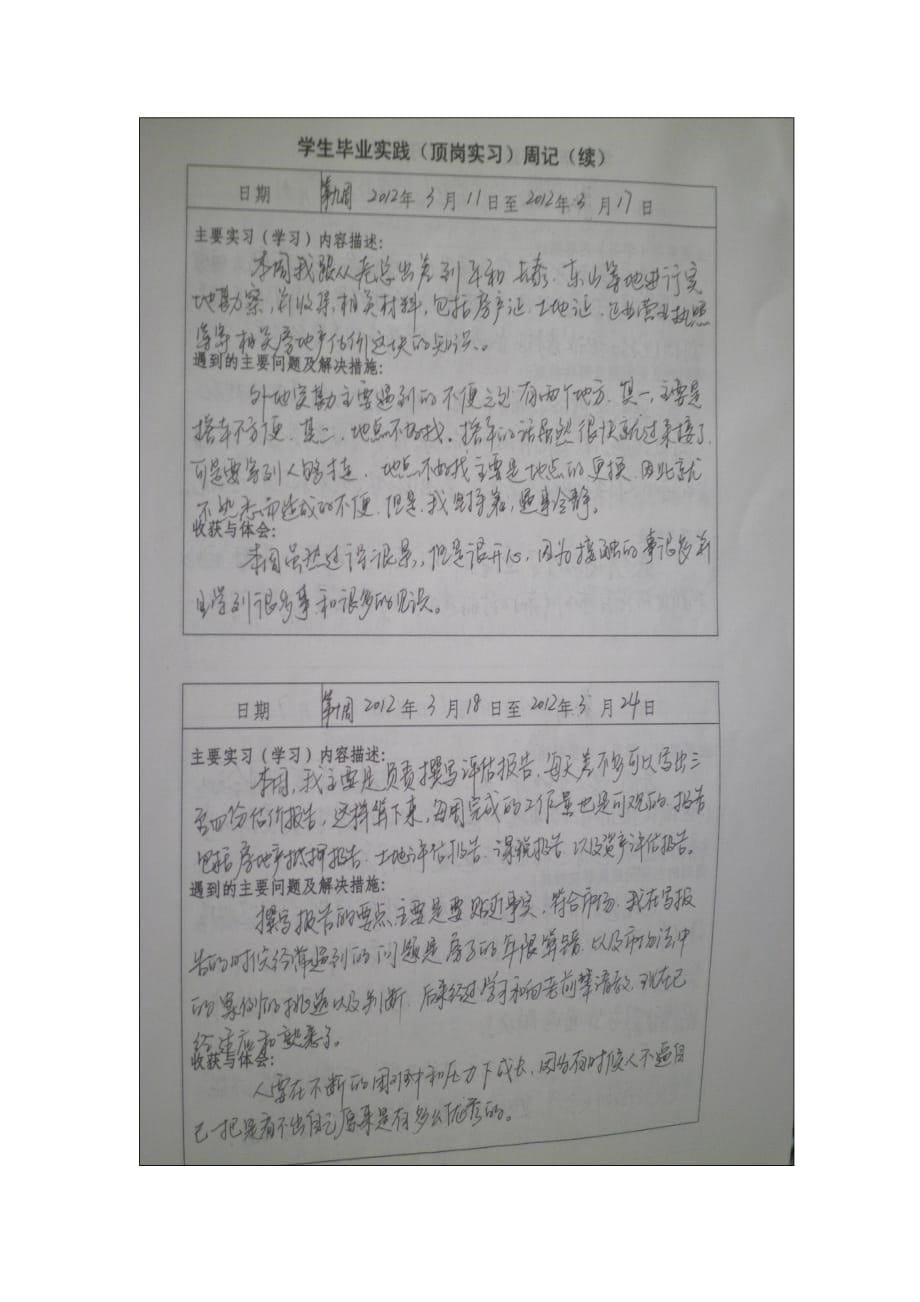 学生毕业实践（顶岗实习）周记（续）
日期 第九周 2012年3月11日至2012年3月17日
主要实习（学习）内容描述：
本周我跟从老总出差到平和、长泰、东山等地进行实
地勘察，并收集相关材料，包括房产证、土地证、还有营业执照
等等相关房地产估价这块的知识。
遇到的主要问题及解决措施：
外地实勘主要遇到的不便之处有两个地方，其一，主要是
搭车不方便，其二，地点不好找。搭车的话虽然很快就过来接了
可是要等到人够才走，地点不好找主要是地点的更换，因此就
不熟悉而造成的不便，但是，我坚持着，遇事冷静。
收获与体会：
本周虽然过得很累，但是很开心，因为接触的事很多并
且学到很多事和很多的见识。
日期 第十周 2012年3月18日至2012年3月24日
主要实习（学习）内容描述：
本周，我主要是负责撰写评估报告，每天差不多可以写出三
至四份估价报告，这样算下来，每周完成的工作量也是可观的，报告
包括房地产抵押报告、土地评估报告、课税报告、以及资产评估报告。
遇到的主要问题及解决措施：
撰写报告的要点主要是要贴近事实，符合市场，我在写报
告的时候经常遇到的问题是房子的年限算错，以及市场法中
的案例的挑选以及判断，后来经过学习和向老前辈请教，现在已
经和熟悉了。
收获与体会：
人要在不断的困难中和压力下成长，因为有时候人不逼自
己一把是看不出自己原来是有多么优秀的。